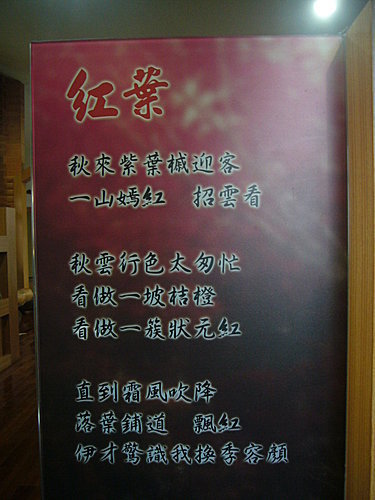 紅葉
秋來紫葉槭迎客
一山嫣紅　招雲看
秋雲行色太匆忙
看做一坡桔橙
看做一簇狀元紅
直到霜風吹降
落葉鋪道　飄紅
伊才驚識我換季容顏